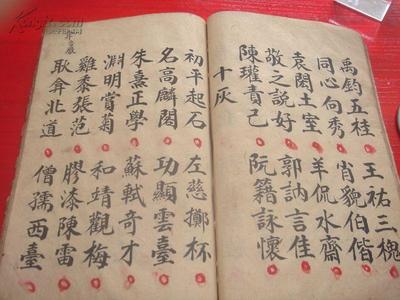 禹釣五桂 王祐三槐
同心向秀 肖貌伯偕
袁閎土室 羊侃水齋
敬之說好 郭訥言佳
陳瓘責己 阮籍詠懷
十灰
初平起石 左慈擲杯
名高麟閣 功顯雲臺
朱熹正學 蘇軾奇才
淵明賞菊 和靖觀梅
雞黍張范 膠漆陳雷
耿弇北道 僧孺西臺